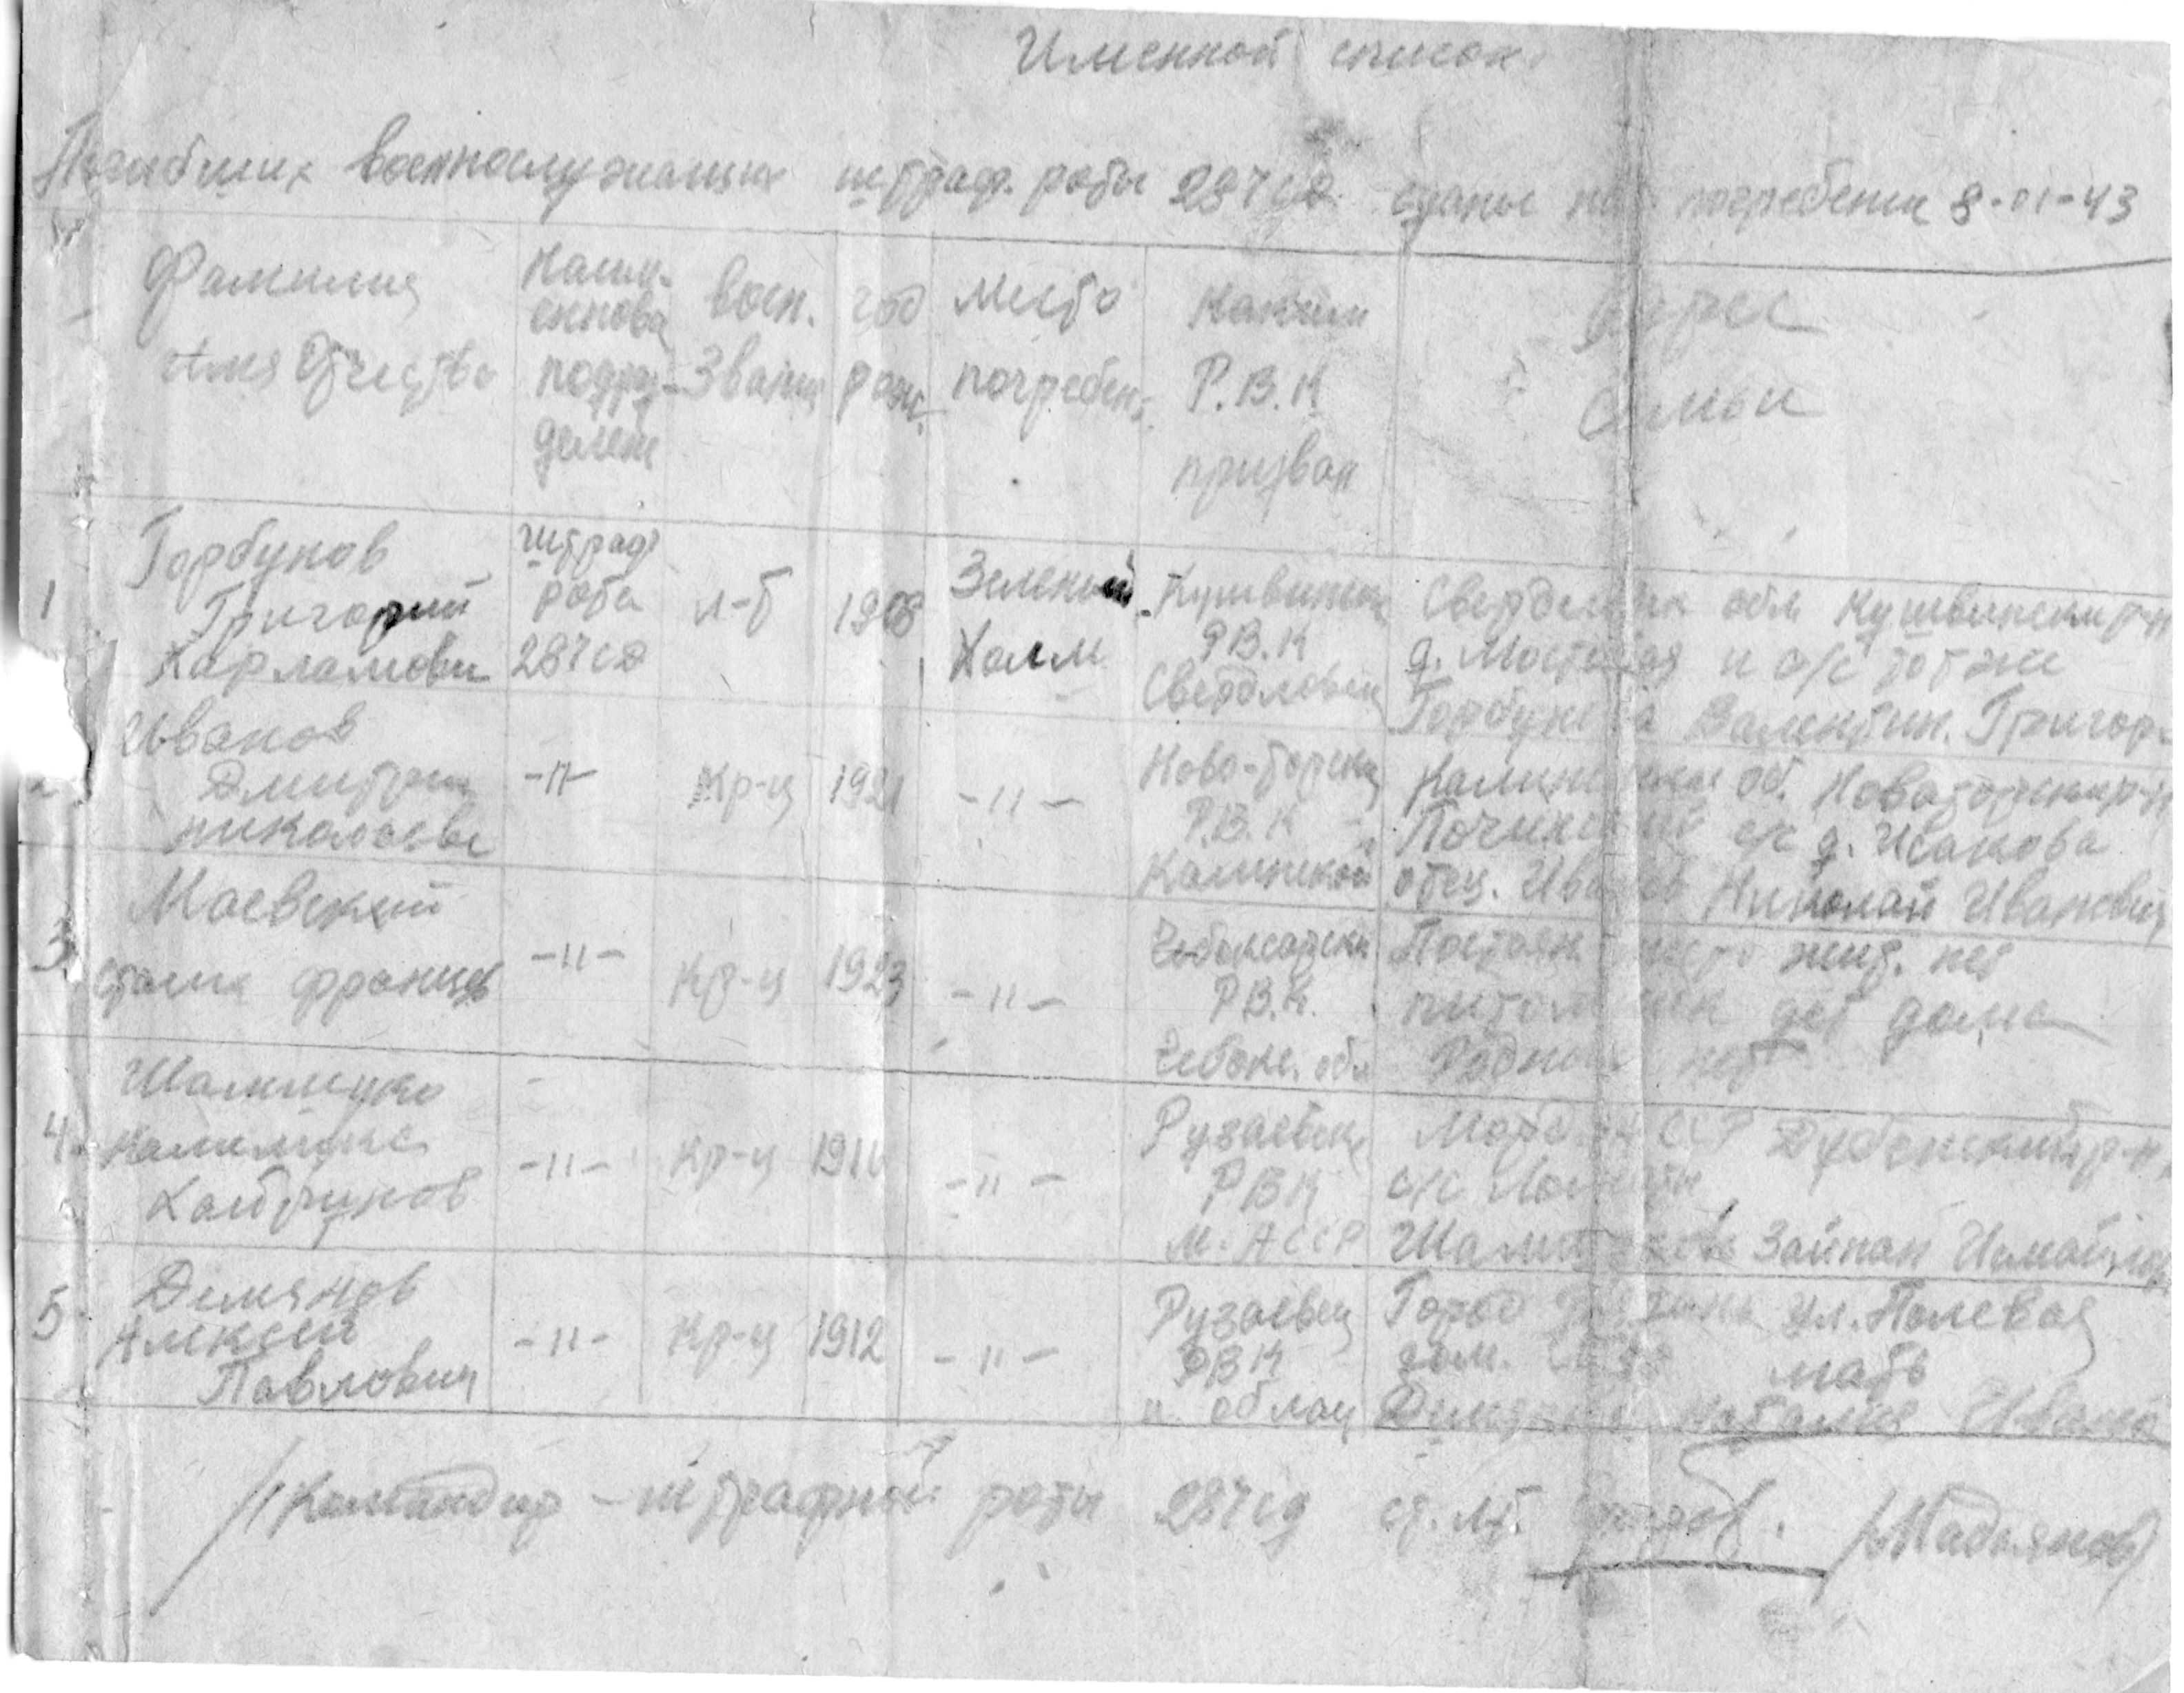 Именной список
Погибших военнослужащих штраф. роты 287 сд. сданы на погребение 8-01-43
Фамилия
Имя Отчество
Наим-
енова
подра-
делен
воен.
Звание
год
рожд.
Место
погребен.
Каким
Р.В.К
призван
Адрес
Семьи
1
Горбунов
Григорий
Харламович
штраф
рота
287 сд
л-т
1908
Зеленый
Холм
Кушвинск
РВ.К
Свердловск
Свердловск обл Кушвинский р-н
д. и с/с тот же
Горбунова Валентин. Григор.
2
Иванов
Дмитрий
Николаевич
-"-
Кр-ц
1921
-"-
Ново-торжск
Р.В.К
Калинской
Калининской об. Новоторжский р-н
с/с д. Исакова
отец. Иванов Николай Иванович
3
Маевский
-"-
Кр-ц
1923
-"-
Чебоксарски
РВ.К.
Чебокс. обл
Постоян место жит. нет
питомник дет дома
Родных нет
4.
-"-
Кр-ц
-"-
Рузаевск
РВК
М. АССР
Морд АССР Дубенский р-н
с/с
Зайнап
5.
Демянов
Алексей
Павлович
-"-
Кр-ц
1912
-"-
Рузаевск
РВК
и област
Город ул. Полевая
дом. мать
Наталия Ивано
Командир-штрафной роты 287 сд ст. л-т.